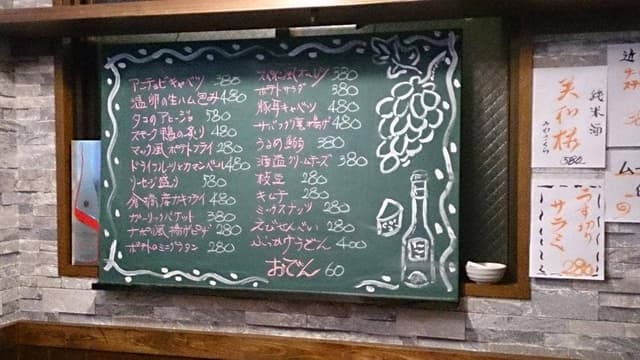 アンチョビキャベツ 380
温卵の生ハム包み 480
タコのアヒージョ 580
スモーク鴨の炙り 480
マック風ポテトフライ 280
ドライフルーツとカマンベール 480
ソーセージ盛り 580
産カキフライ 480
ガーリックバゲット 380
ナポリ風揚げピザ 280
ポテトのミニグラタン 280
スペイン風オムレツ 380
ポテトサラダ 380
豚耳キャベツ 480
480
うるめ鰯 380
酒盗クリームチーズ 380
枝豆 280
キムチ 280
ミックスナッツ 280
えびせんべい 280
ぶっかけうどん 400
おでん 60
純米酒
美和桜
みわさくら
380
うす切り
サラミ
280